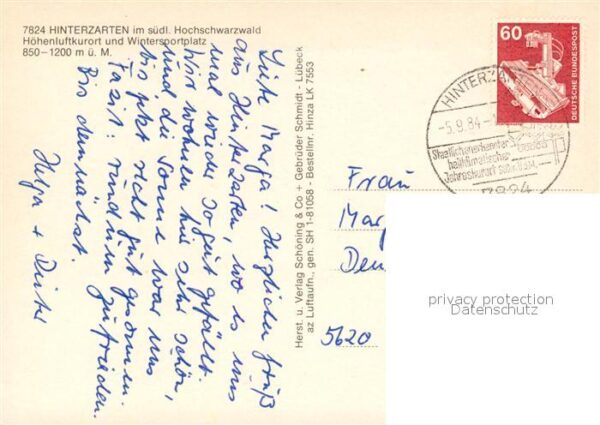 7824 HINTERZARTEN im südl. Hochschwarzwald
Höhenluftkurort und Wintersportplatz
850–1200 m ü. M.
Liebe Marga! Herzlichen Gruß
aus Hinterzarten, wo es uns
mal wieder so gut gefällt.
Wir wohnen hier sehr schön,
und die Sonne war uns
bis jetzt recht gut gesonnen.
Fazit: rundum zufrieden.
Bis demnächst.
Helga + Dieter
Herst. u. Verlag Schöning & Co + Gebrüder Schmidt - Lübeck
az Luftaufn., gen. SH 1-81058 - Bestellnr. Hinza LK 7553
60
DEUTSCHE BUNDESPOST
HINTERZA
-5.9.84-
Staatlich anerkannter
heilklimatischer
Jahreskurort 7824
Frau
Mar
Den
5620
privacy protection
Datenschutz